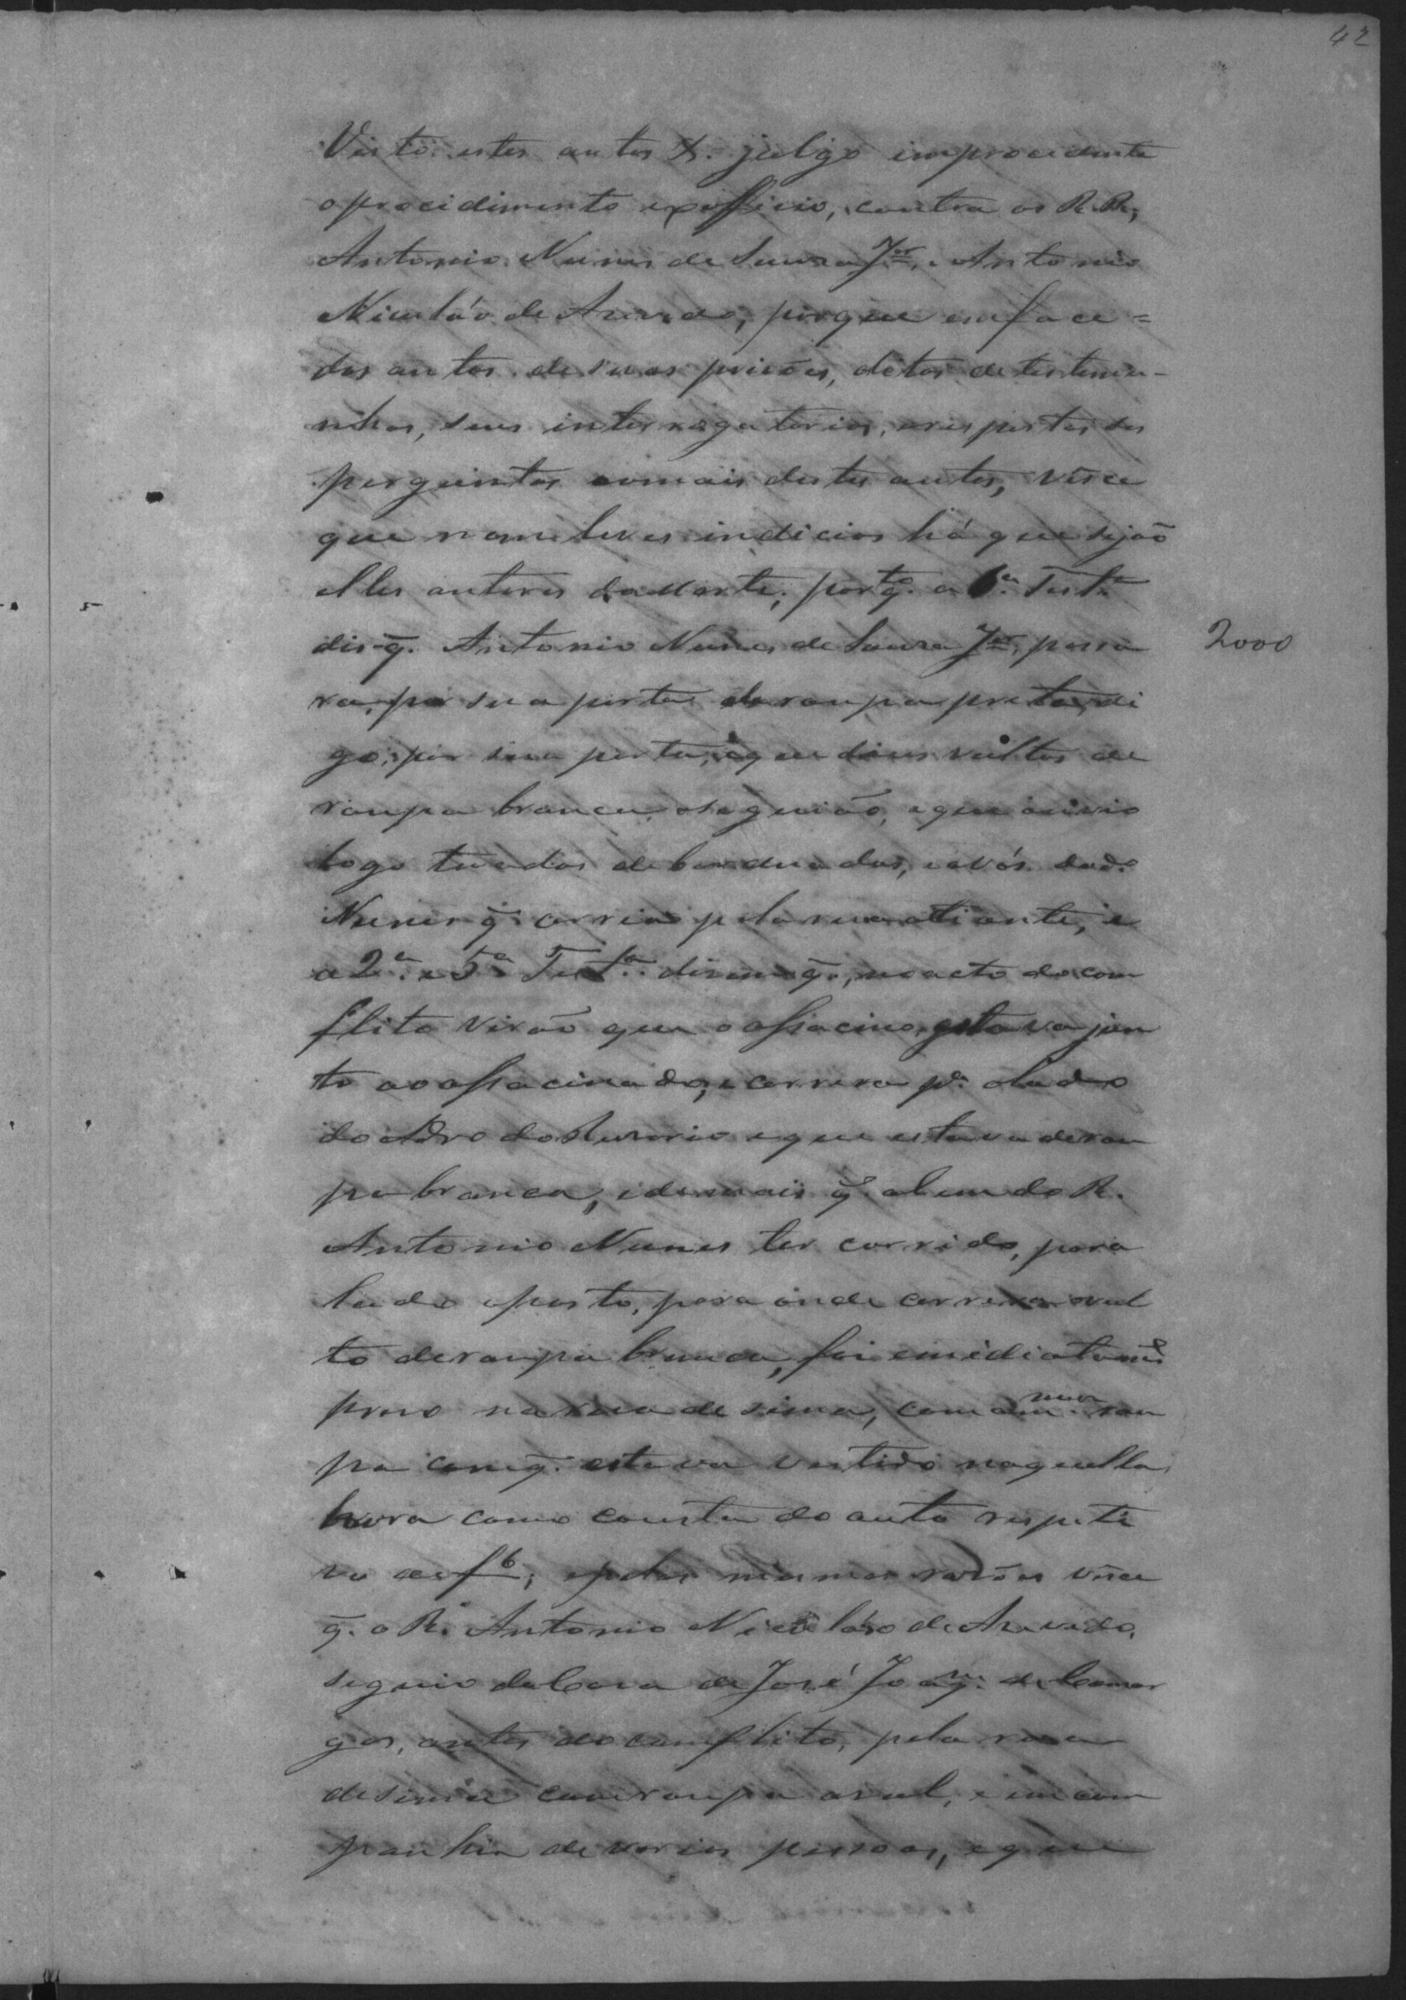 42
Visto estes autos &. julgo improcedente
oprocidimento exofficio, contra os R.R.,
Antonio Nunes de Souza Jor. e Antonio
Nicoláo de Azevedo, porque em face =
dos autos de suas prisões, ditos de testemu-
nhas, seus interrogatorios, erespostas das
perguntas eomais destes autos, vêsce
que nem leves indicios há que sejão
elles autores da morte, portq. a 6a. Testa.
dis q. Antonio Nunes de Souza Jor. passa
ra, por sua porta de roupa preta, di
go, por sua porta, eque dous vultos de
roupa branca oseguião, eque ouvio
logo tuadas de borduadas, eavós de
Nunes q. corria pela rua adiante, e
a 2a. e 5a Testa. dizem q., noacto do com
flito virão que o assacino estava jun
to aoassacinado, e correra pa. olado
do Adro do Rusario eque estava derou
pa branca, edemais q. alem do R.
Antonio Nunes ter corrido, para
lado oposto, para onde correra ovul
to deroupa branca, foi emidiatame.
prezo narua de sima, com a mma. rou
pa com q. estava vestido naquella
hora como consta do auto respeti
vo de f 6; epelas mesmas razões vêsce
q. o R. Antonio Nicoláo de Azevedo,
seguio daCaza de José Joaqm. de Camar
gos, antes do comflito, pela rua
desima com roupa azul, e em com
panhia de varias pessoas, eque
2000